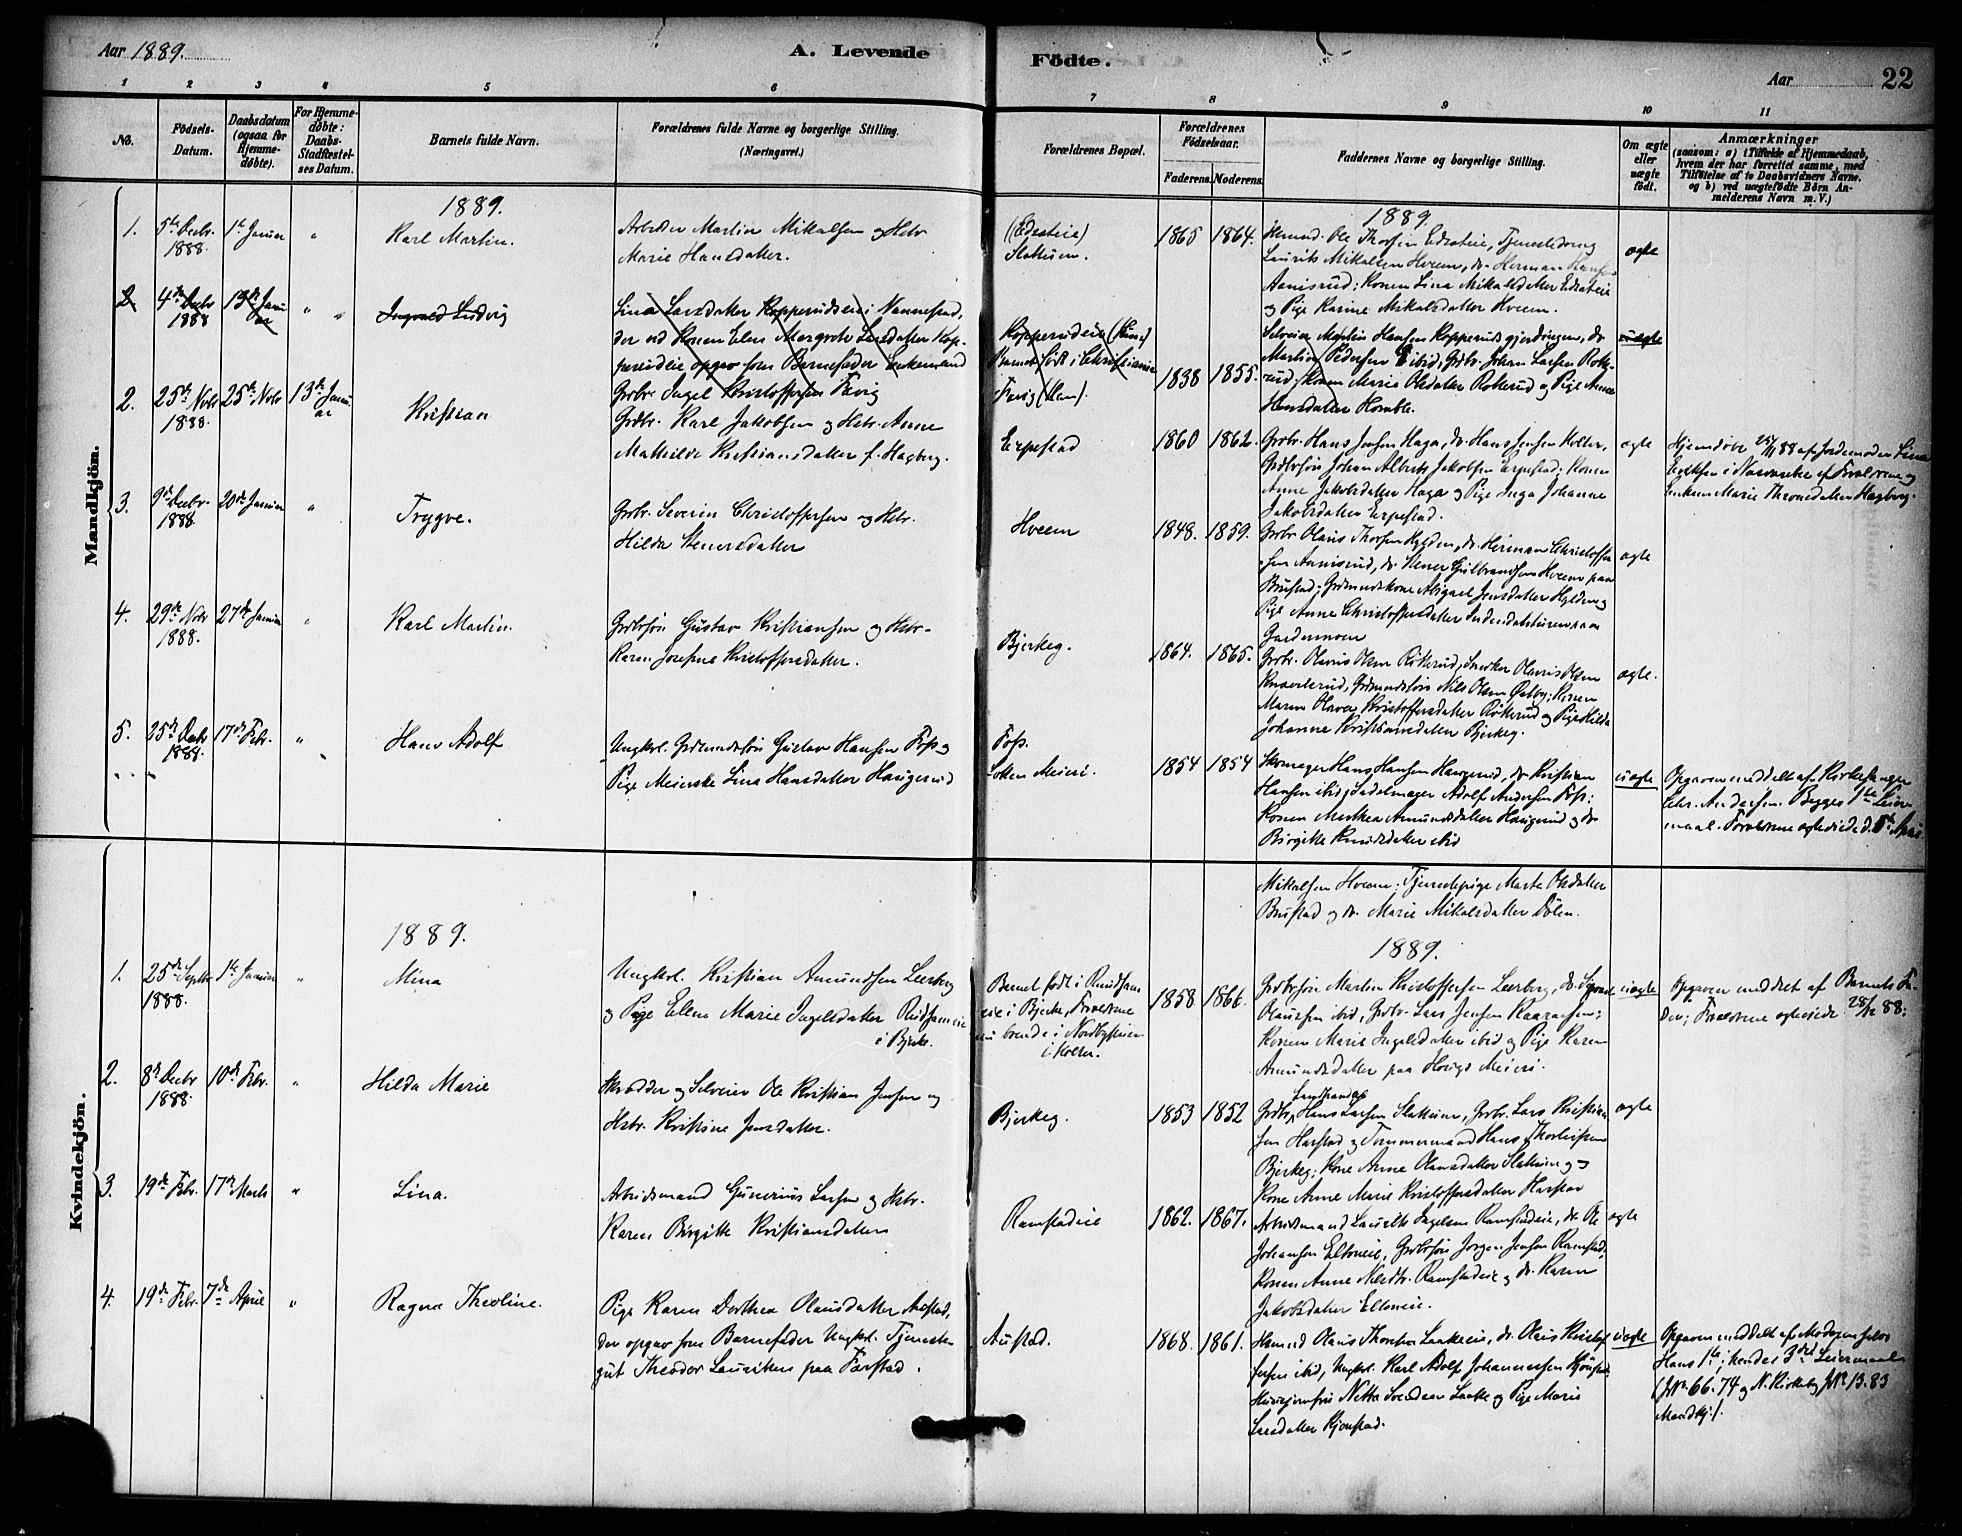 Aar 1889.
A. Levende
Födte.
Aar
22
1 2 3 4 5 6 7 8 9 10 11
No.
Födsels-
Datum.
Daabsdatum
(ogsaa for
Hjemme-
döbte).
For Hjemme-
döbte:
Daabs-
Stadfæstel-
ses Datum.
Barnets fulde Navn.
Forældrenes fulde Navne og borgerlige Stilling.
(Næringsvei.)
Forældrenes Bopæl.
Forældrenes
Födselsaar.
Faderens. Moderens.
Faddernes Navne og borgerlige Stilling.
Om ægte
eller
uægte
födt.
Anmærkninger
(saasom: a) i Tilfælde af Hjemmedaab,
hvem der har forrettet samme, med
Tilföielse af to Daabsvidners Navne.
og b) ved uægtefödte Börn An-
melderens Navn m. V.)
Mandkjön.
1889.
1889.
1. 5te Decbr 1ste Januar " Karl Martin.
1888.
Arbeider Martin Mikalsen og Hstr
Marie Hansdatter.
(Edsateie)
Slattum.
1865 1864.
Ole Thorsen Edsateie, Tjenestedreng
Laurits Mikalsen Hveem, do Herman
Aanisrud; Konen Lina Mikalsdatter Edsateie
og Pige Karine Mikalsdatter Hveem.
ægte
2. 4de Decbr 13de Janu
1888 ar
" " Ingvald Ludvig
Lina Larsdatter Kopperudseie i Nannestad,
der ved Konen Elen Margrete Larsdatter Kop-
perudeie opgav som Barnefader Enkemand
Grbr. Ingel Kristoffersen Favig
Kopperudeie
Barnet født i Christiania
Favig
1838 1855.
Selveier Martin Hansen Kopperudgjordingen, do
Martin Pedersen ibid, Grbr. Johan Larsen Røke-
rud; Konen Marie Olsdatter Røkerud og Pige Anne
Hansdatter Homble.
uægte
2. 25de Novbr 25de Novbr 13de Janu
1888. ar
Kristian
Grdbr. Karl Jakobsen og Hstr. Anne
Mathilde Kristiansdatter f. Hagberg.
Erpestad
1860 1862.
Grbr. Hans Jensen Haga, do. Hans Jensen Kolter,
Grdbrsøn Johan Albert Jakobsen Erpestad; Konen
Anne Jakobsdatter Haga og Pige Inga Johanne
Jakobsdatter Erpestad.
ægte
Hjemdøbt 25/11 88 af Jordemoder Lina
Eriksen i Nærværelse af Forældrene og
Enken Marie Thronsdatter Hagberg.
3. 9de Decbr 20de Januar " Trygve.
1888.
Grbr. Severin Christoffersen og Hstr.
Hilda Stenersdatter
Hveem
1848. 1859.
Grbr Olaus Thorsen Hylden, do. Herman Christoffer-
sen Aanisrud, do. Stener Gulbrandsen Hveem paa
Brustad; Grdmandskone Abigael Jensdatter Hylden og
Pige Anne Christoffersdatter
Gardermoen
ægte
4. 29de Novbr 27de Januar " Karl Martin.
1888.
Grdbrsøn Gustav Kristiansen og Hstr.
Karen Josefine Kristoffersdatter.
Bjerkeg.
1864. 1865.
Grbr. Olavis Olsen Røkerud, Snedker Olavis Olsen
Knaverud, Grdmandssøn Nils Olsen Østby; Konen
Maren Olava Kristoffersdatter Røkerud og Pige Hilda
Johanne Kristiansdatter Bjerkeg.
ægte.
5. 25de Decbr 17de Febr. " Hans Adolf
1888.
Ungkrl. Grdmandssøn Gustav Hansen Foss og
Pige Meierske Lina Hansdatter Haugerud
Foss.
Loken Meieri.
1854 1854
Skomager Hans Hansen Haugerud, do Kristian
Hansen ibid; Sadelmager Adolf Andersen Foss;
Konen Mathea Amundsdatter Haugerud og do
Birgitte Knudsdatter ibid
uægte
Opgaven meddelt af Kirkesanger
Chr. Andersen. Begges 1ste Leier-
maal. Forældrene egteviede d. 5te April
Kvindekjön.
Mikalsen Hveem; Tjenestepige Marte Olsdatter
Brustad og do. Marie Mikalsdatter Dølen.
1889.
1889.
1. 25de Septbr 1ste Januar " Mina
1888.
Ungkrl. Kristian Amundsen Leerberg
og Pige Ellen Marie Ingelsdatter Rudsameie
i Bjerke.
Barnet født i Rudsam-
eie i Bjerke, Forældrene
nu boende i Nordbyeie
i Kolter.
1858 1866.
Grdbrsøn Martin Kristoffersen Leerberg, do
Olaussen ibid, Grbr. Lars Jensen Kaarausen;
Konen Marie Ingelsdatter ibid og Pige Karen
Amundsdatter paa Hougs Meieri.
uægte
Opgaven meddelt af Barnets Fa-
der; Forældrene egteviede 28/12 88.
2. 8de Decbr 10de Febr. " Hilda Marie
1888.
Skrædder og Selveier Ole Kristian Jensen og
Hstr. Kristine Jensdatter.
Bjerkeg.
1853 1852
Landhandler
Grdbr. Hans Larsen Slattum, Grbr. Lars Kristian-
sen Harstad og Tømmermand Hans Thorleifsen
Bjerkeg; Kone Anne Olausdatter Slattum og
Kone Anne Marie Kristoffersdatter Harstad
ægte
3. 19de Febr. 17de Marts " Lina.
Arbeidsmand Gunerius Larsen og Hstr.
Karen Birgitte Kristiansdatter
Ramstadeie
1862. 1867.
Arbeidsmand Laurits Ingelsen Ramstadeie, do Ole
Johansen Eltoneie, Grdbrsøn Jørgen Jensen Ramstad,
Konen Anne Nilsdtr. Ramstadeie og do. Karen
Jakobsdatter Eltoneie.
ægte
4. 19de Febr. 7de April " Ragna Theoline.
Pige Karen Dorthea Olausdatter Austad,
der opgav som Barnefader Ungkrl. Tjeneste-
gut Theodor Lauritsen paa Farstad.
Austad.
1868. 1861.
Olaus Thorsen Laakeeie, do. Olaus Kristof-
fersen ibid, Ungkrl. Karl Adolf Johannessen Kjonstad
Huusjomfru Netta Svendsen Laake og Pige Marie
Larsdatter Kjonstad.
uægte
Opgaven meddelt af Moderen selv.
Hans 1ste, hendes 3die Leiermaal
(JNr. 66. 74 og N. Kirkebog JNr. 13. 83
Mandkj.).